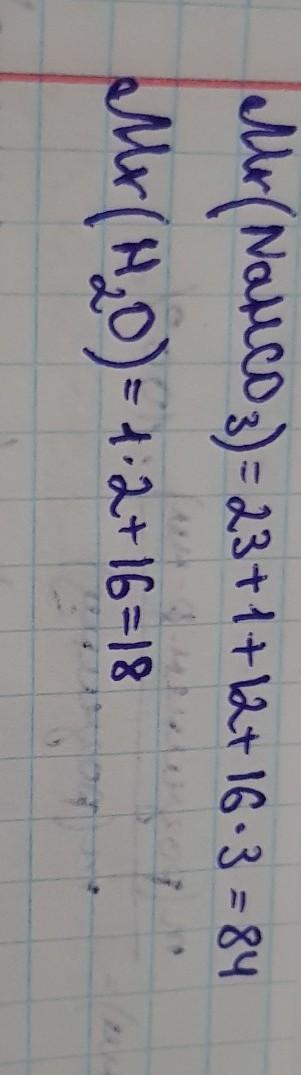 Mr(NaHCO₃) = 23 + 1 + 12 + 16 · 3 = 84
Mr(H₂O) = 1 · 2 + 16 = 18